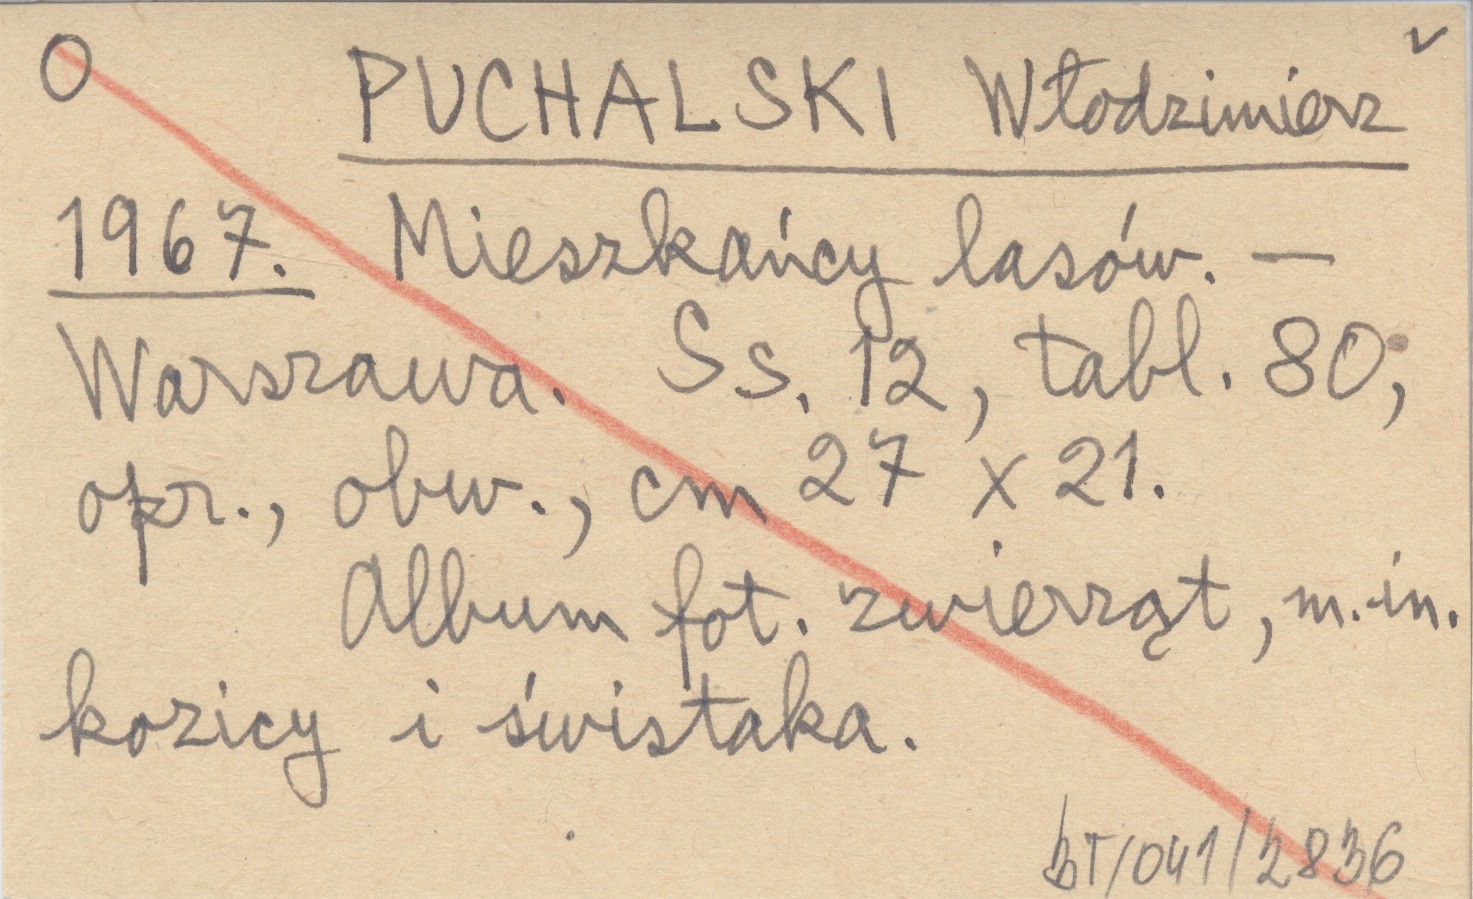 O PUCHALSKI Włodzimierz
1967. Mieszkańcy lasów. —
Warszawa. Ss. 12, tabl. 80,
opr., obw., cm 27 x 21.
Album fot. zwierząt, m.in.
kozicy i świstaka.
BT/041/2836